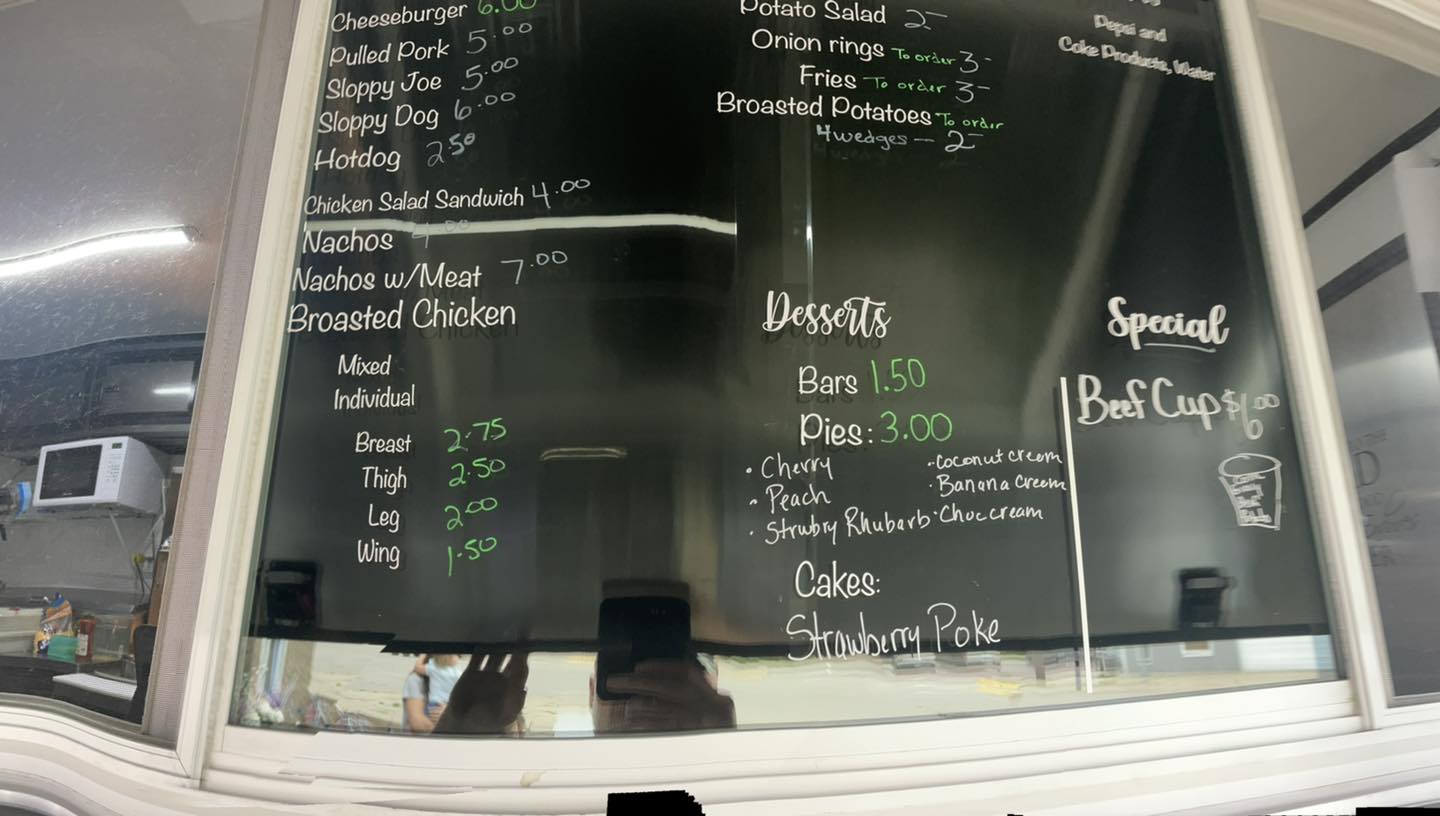 Cheeseburger 6.00
Pulled Pork 5.00
Sloppy Joe 5.00
Sloppy Dog 6.00
Hotdog 2.50
Chicken Salad Sandwich 4.00
Nachos 4.00
Nachos w/Meat 7.00
Broasted Chicken
Mixed
Individual
Breast 2.75
Thigh 2.50
Leg 2.00
Wing 1.50
Potato Salad 2-
Onion rings To order 3-
Fries To order 3-
Broasted Potatoes To order
4 wedges - 2-
Desserts
Bars 1.50
Pies: 3.00
• Cherry
• Peach
• Strubry Rhubarb
• Coconut cream
• Banana Creem
• Choc cream
Cakes:
Strawberry Poke
Pepsi and
Coke Products, Water
Special
Beef Cup $6.00